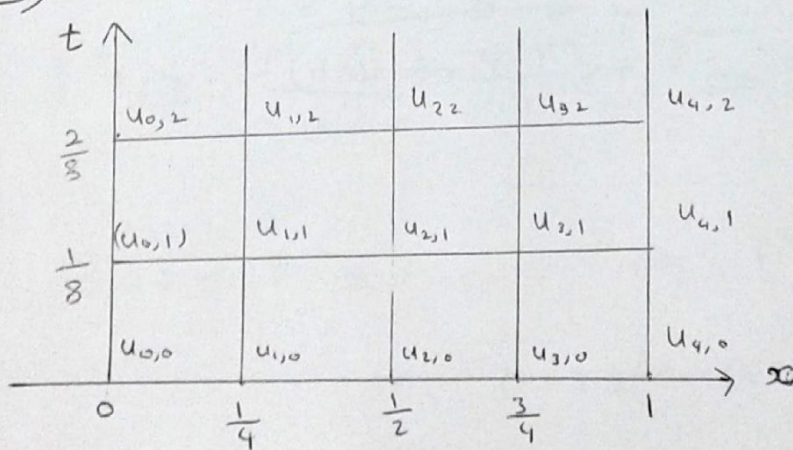 t
u0,2 u1,2 u22 u32 u4,2
2/8
(u0,1) u1,1 u2,1 u3,1 u4,1
1/8
u0,0 u1,0 u2,0 u3,0 u4,0
x
0 1/4 1/2 3/4 1